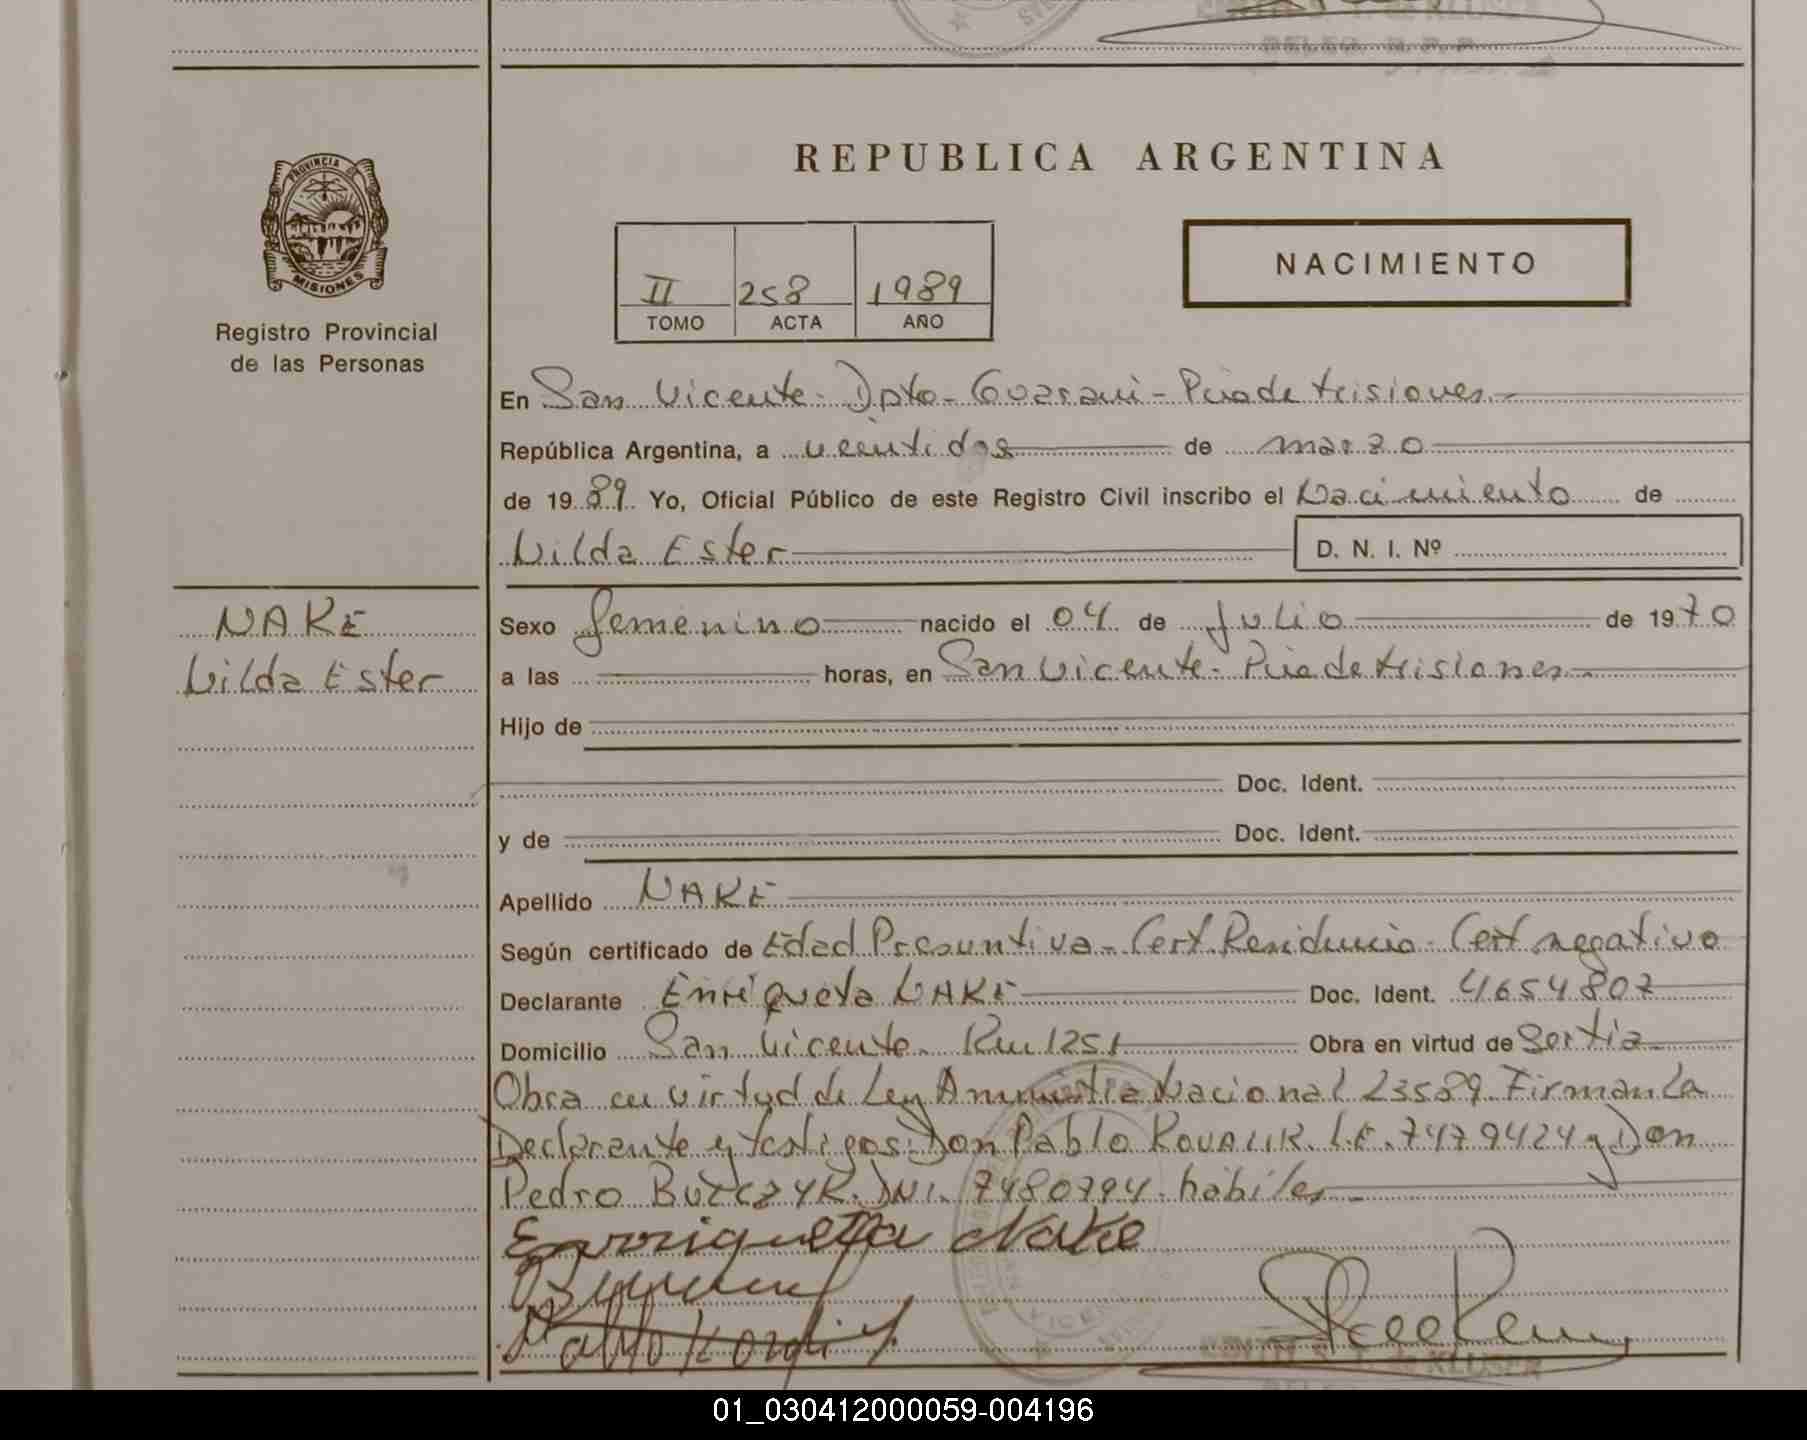 PROVINCIA DE
MISIONES
Registro Provincial
de las Personas
REPUBLICA ARGENTINA
II 258 1989
TOMO ACTA AÑO
NACIMIENTO
En San Vicente - Dpto - Guarani - Pcia de Misiones
República Argentina, a veintidos de marzo
de 1989. Yo, Oficial Público de este Registro Civil inscribo el Nacimiento de
Nilda Ester D. N. I. Nº
NAKE
Nilda Ester
Sexo femenino nacido el 04 de Julio de 1970
a las horas, en San Vicente - Pcia de Misiones
Hijo de
Doc. Ident.
y de Doc. Ident.
Apellido NAKE
Según certificado de Edad Presuntiva - Cert Residencia - Cert negativo
Declarante Enriqueta NAKE Doc. Ident. 4654807
Domicilio San Vicente - Km 1251 Obra en virtud de
Obra en virtud de Ley Amnistia Nacional 23589. Firman La
Declarante y testigos: Don Pablo KOVALIK. L.E. 7479424 y Don
Pedro DNI. 7480794. habiles
Enriqueta Nake
KLUSER
01_030412000059-004196